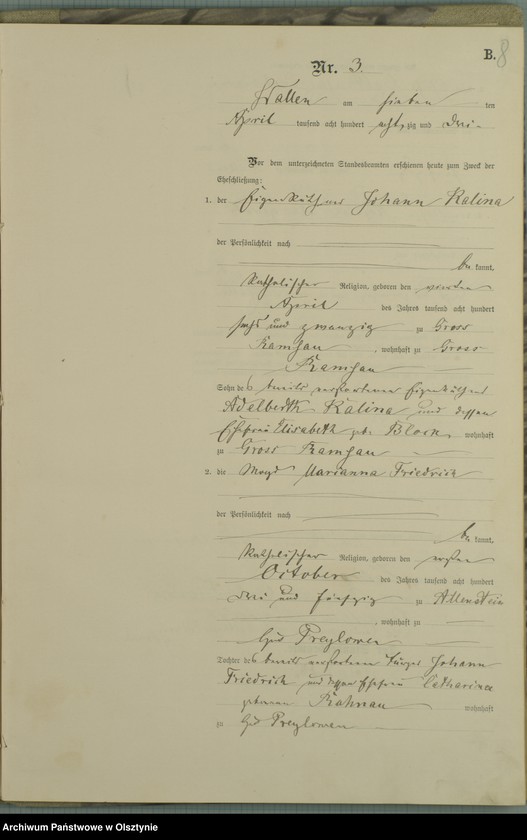 B. 8
Nr. 3.
Wallen am sieben ten
April tausend acht hundert achtzig und drei
Vor dem unterzeichneten Standesbeamten erschienen heute zum Zweck der
Eheschließung:
1. der Eigenkäthner Johann Kalina
der Persönlichkeit nach
be kannt,
katholischer Religion, geboren den vierten
April des Jahres tausend acht hundert
sechs und zwanzig zu Gross
Ramsau, wohnhaft zu Gross
Ramsau
Sohn des bereits verstorbenen Eigenkäthner
Adalberth Kalina und dessen
Ehefrau Elisabeth geb. wohnhaft
zu Gross Ramsau
2. die Magd Marianna Friedrich
der Persönlichkeit nach
be kannt,
katholischer Religion, geboren den ersten
October des Jahres tausend acht hundert
drei und fünfzig zu Allenstein
, wohnhaft zu
Gut Preylowen
Tochter des bereits verstorbenen Johann
Friedrich und dessen Ehefrau Catharina
geborenen wohnhaft
zu Gut Preylowen
Archiwum Państwowe w Olsztynie